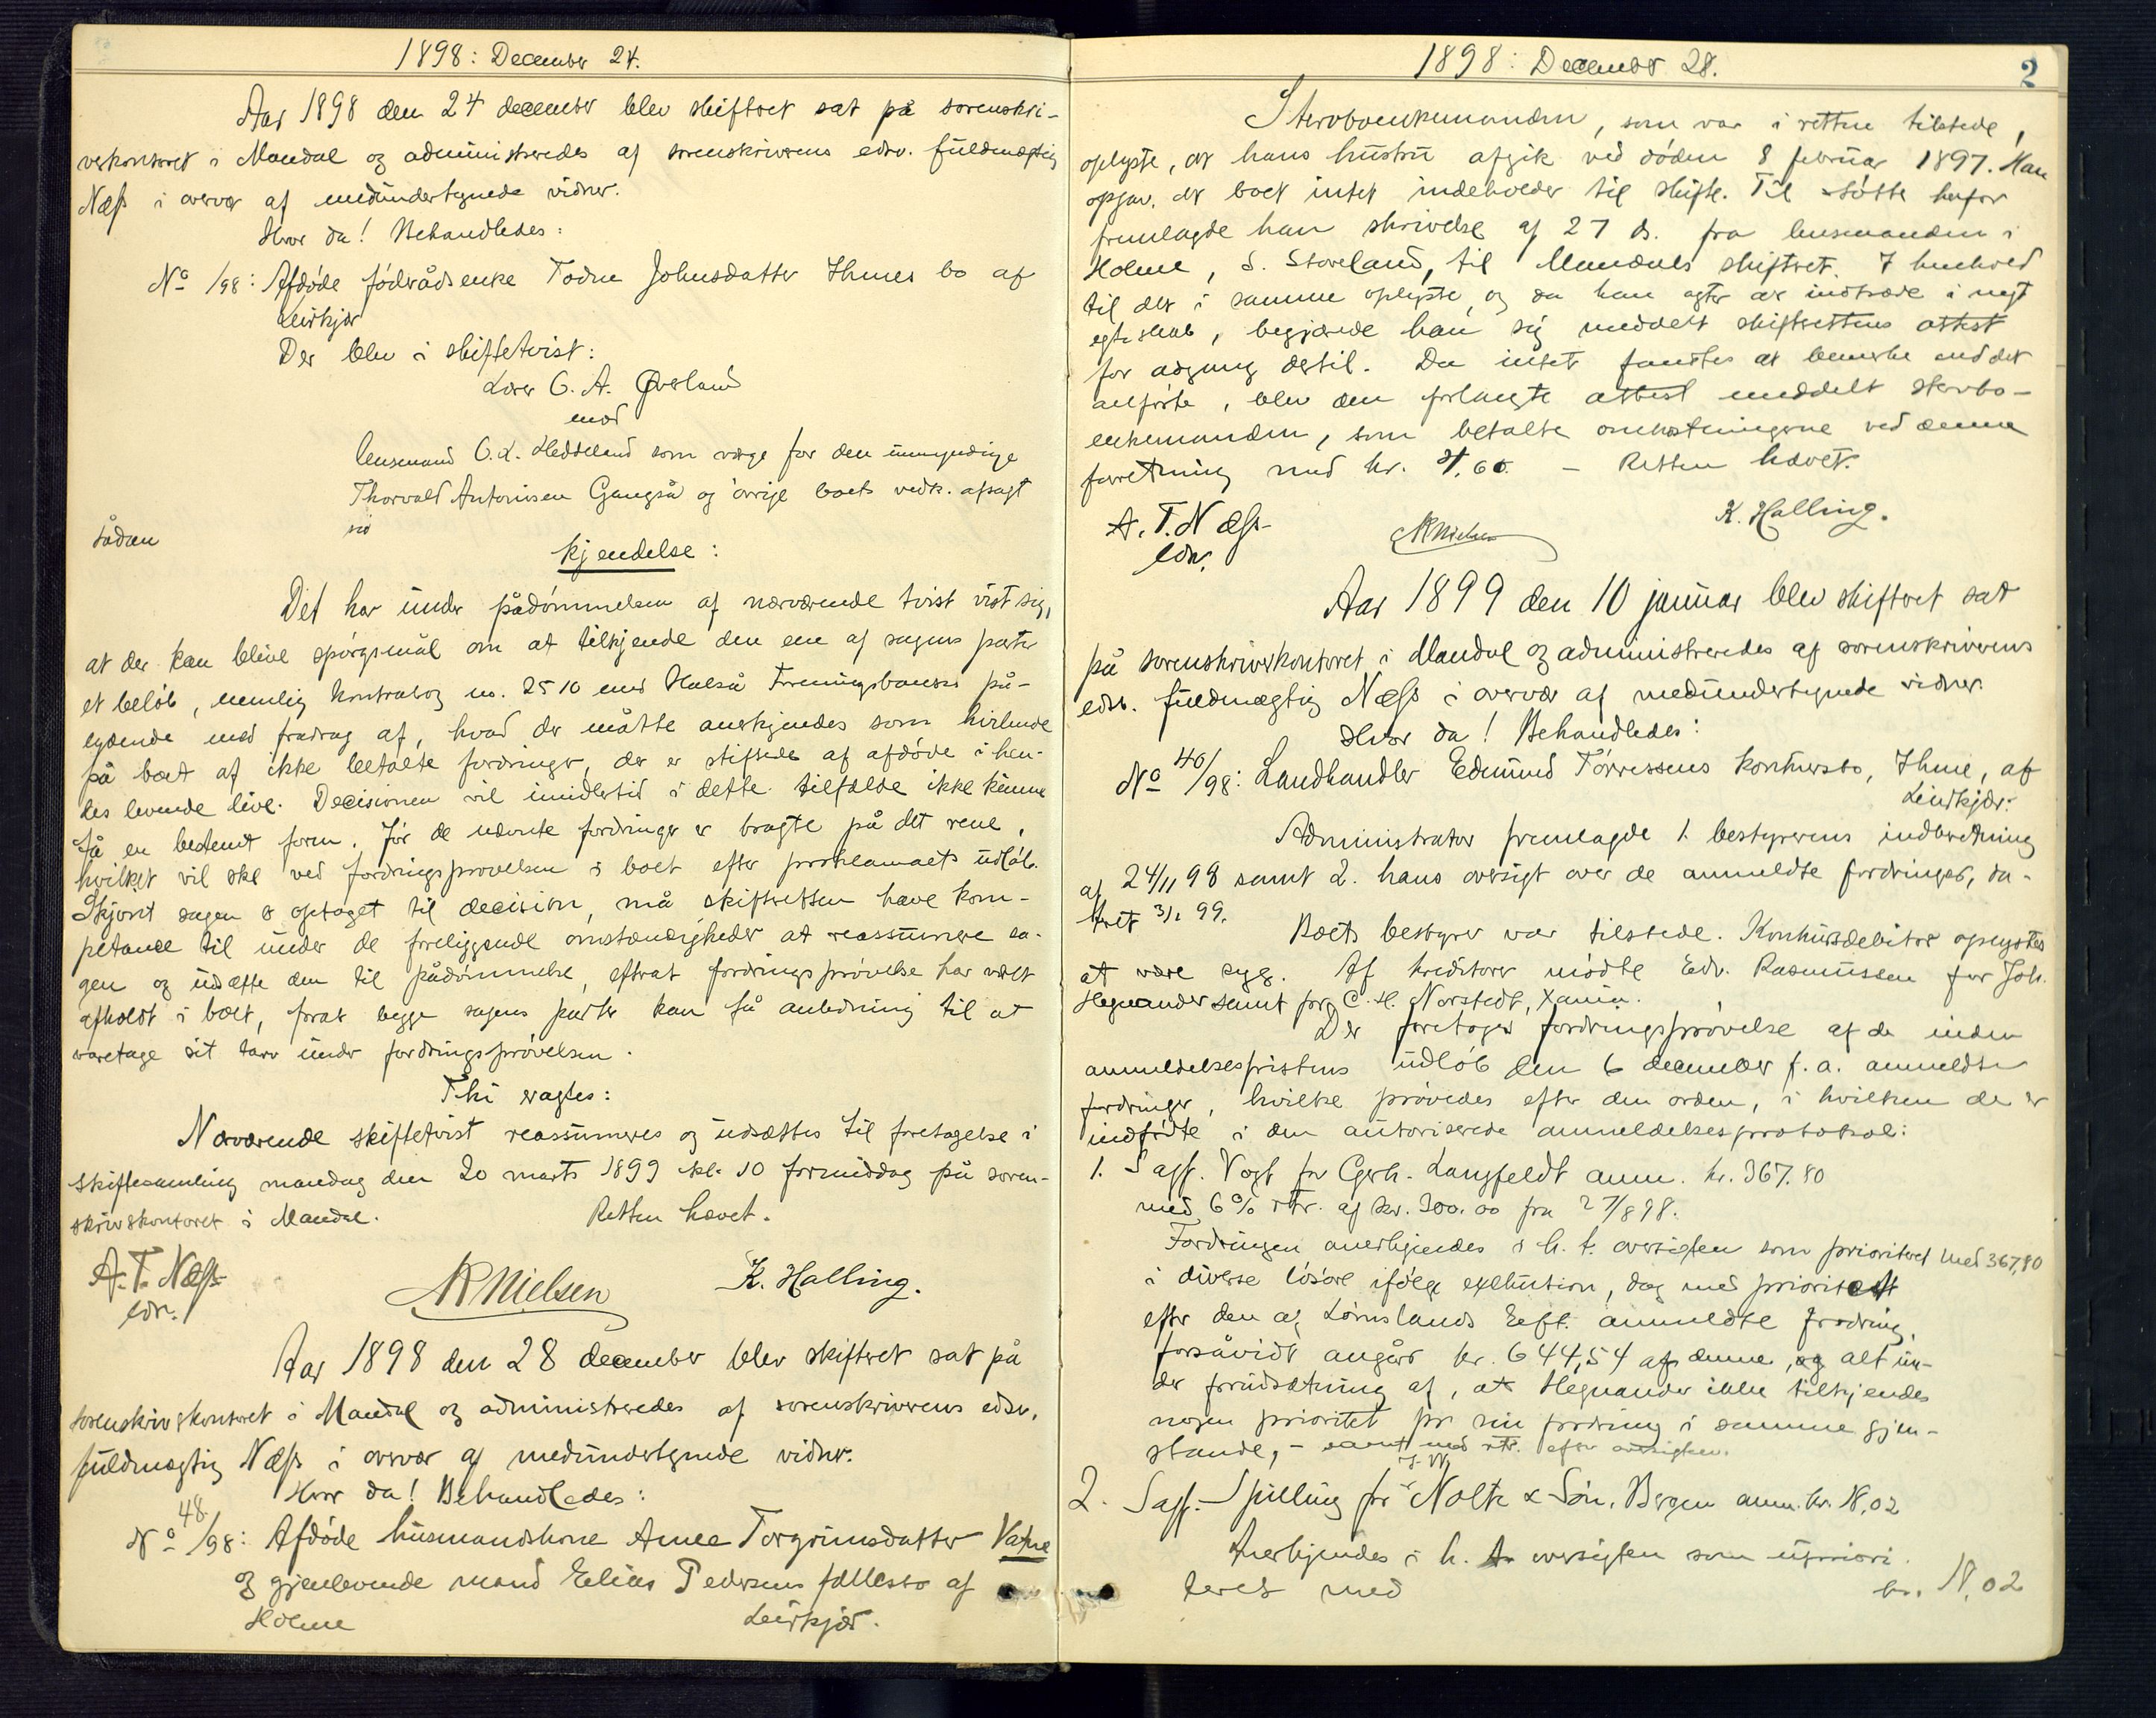 1898: December 24.
Aar 1898 den 24 december blev skifteret sat på sorenskri-
verkontoret i Mandal og administreredes af sorenskriverens edsv. fuldmægtig
Næss i overvær af medundertegnede vidner.
Hvor da! Behandledes:
No /98: Afdøde føderådsenke Todne Johnsdatter Ihmes bo af
Leirkjær
Der blev i skiftetvist:
Lærer O. A. Øveland
mod
lensmand O. K. Heddeland som værge for den umyndige
Thorvald Antonisen Gangså og øvrige boets vedk. afsagt
sådan
kjendelse:
Det har under pådømmelsen af nærværende tvist vist sig,
at der kan blive spørgsmål om at tilkjende den ene af sagens parter
et beløb, nemlig kontrabog no. 2510 med Halså Foreningsbanks på-
lydende med fradrag af, hvad der måtte anerkjendes som hvilende
på boet af ikke betalte fordringer, der er stiftede af afdøde i hen-
des levende live. Decisionen vil imidlertid i dette tilfælde ikke kunne
få en bestemt form, før de nævnte fordringer er bragte på det rene,
hvilket vil ske ved fordringsprøvelsen i boet efter proklamaets udløb.
Skjønt sagen er optaget til decision, må skifteretten have kom-
petance til under de foreliggende omstændigheder at reassumere sa-
gen og udsætte den til pådømmelse, efterat fordringsprøvelse har været
afholdt i boet, forat begge sagens parter kan få anledning til at
varetage sit tarv under fordringsprøvelsen.
Thi eragtes:
Nærværende skiftetvist reassumeres og udsættes til foretagelse i
skiftesamling mandag den 20 marts 1899 kl. 10 formiddag på soren-
skriverkontoret i Mandal. Retten hævet.
A. T. Næss
edsv.
NR Nielsen
K. Halling.
Aar 1898 den 28 december blev skifteret sat på
sorenskriverkontoret i Mandal og administreredes af sorenskriverens edsv.
fuldmægtig Næss i overvær af medundertegnede vidner.
Hvor da! Behandledes:
No 48/98: Afdøde husmandskone Anne Torgrimsdatter Vatne
og gjenlevende mand Elias Pedersens fællesbo af
Holme Leirkjær.
1898: December 28. 2
Stervboenkemanden, som var i retten tilstede,
oplyste, at hans hustru afgik ved døden 8 februar 1897. Han
opgav, at boet intet indeholder til skifte. Til støtte herfor
fremlagde han skrivelse af 27 ds. fra lensmanden i
Holme, S. Støveland, til Mandals skifteret. I henhold
til det i samme oplyste og da han agter at indtræde i nyt
egteskab, begjærede han sig meddelt skifterettens attest
for adgang dertil. Da intet fandtes at bemerke mod det
anførte, blev den forlangte attest meddelt stervbo-
enkemanden, som betalte omkostningerne ved denne
forretning med kr. 4,60. – Retten hævet.
A. T. Næss
edsv.
NR Nielsen
K. Halling.
Aar 1899 den 10 januar blev skifteret sat
på sorenskriverkontoret i Mandal og administreredes af sorenskriverens
edsv. fuldmægtig Næss i overvær af medundertegnede vidner.
Hvor da! Behandledes:
No 40/98: Landhandler Edmund Tørressens konkursbo, Ihme, af
Leirkjær:
Administrator fremlagde 1. bestyrerens indberetning
af 24/11 98 samt 2. hans oversigt over de anmeldte fordringer, da-
teret 3/1 99.
Boets bestyrer var tilstede. Konkursdebitor oplystes
at være syg. Af kreditorer mødte Edv. Rasmussen for Joh.
Hegnander samt for C. H. Norstedt, Xania.
Der foretoges fordringsprøvelse af de inden
anmeldelsesfristens udløb den 6 december f. a. anmeldte
fordringer, hvilke prøvedes efter den orden, i hvilken de er
indførte i den autoriserede anmeldelsesprotokol:
1. Sagf. Vogt for Gerh. Langfeldt anm. kr. 367.80
med 6% rtr. af kr. 300.00 fra 27/8 98.
Fordringen anerkjendes i h. t. oversigten som prioriteret med 367,80
i diverse løsøre ifølge exekution, dog med prioritet
efter den af Lømslands Eeft. anmeldte fordring,
forsåvidt angår kr. 644,54 af denne, og alt un-
der forudsætning af, at Hegnander ikke tilkjendes
nogen prioritet for sin fordring i samme gjen-
stande, – samt med rtr. efter oversigten.
2. Sagf. Spilling for J. W. Nolte & Søn, Bergen anm. kr. 18,02
Anerkjendes i h. t. oversigten som upriori-
teret med kr. 18,02